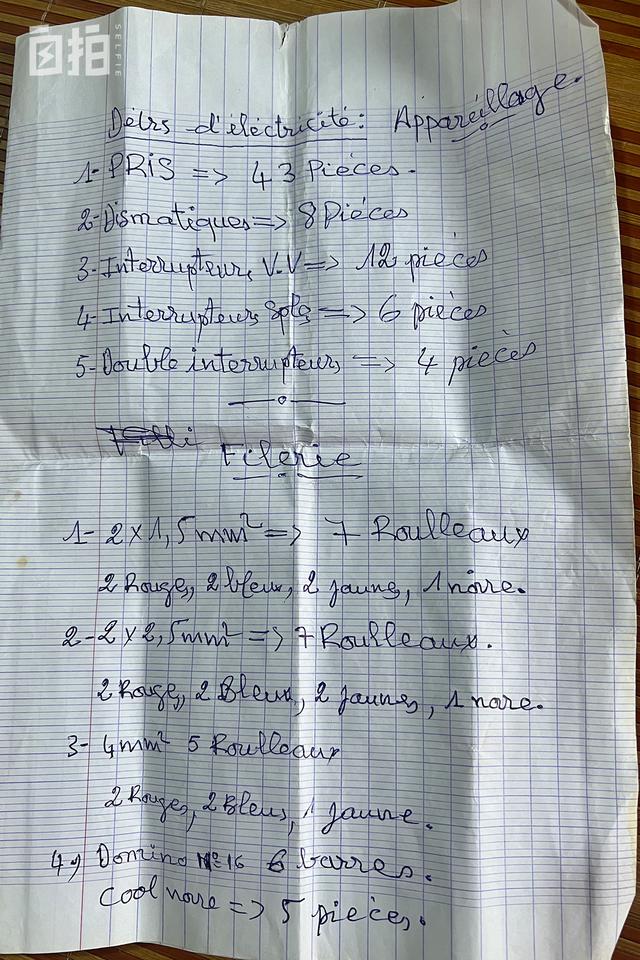 自拍
SELFIE
Détrs d'éléctricité: Appareillage.
1- PRiS => 43 Pièces.
2- Dismatiques => 8 Pièces
3- Interrupteurs V.V => 12 pièces
4- Interrupteurs Spls => 6 pièces
5- Double interrupteurs => 4 pièces
Filerie
1- 2 x 1,5mm² => 7 Roulleaux
2 Rouges, 2 bleux, 2 jaunes, 1 noire.
2- 2 x 2,5mm² => 7 Roulleaux.
2 Rouges, 2 Bleux, 2 Jaunes, 1 noire.
3- 4mm² 5 Roulleaux
2 Rouges, 2 Bleus, 1 Jaune.
4) Domino N°16 6 barres.
Cool noire => 5 pièces.